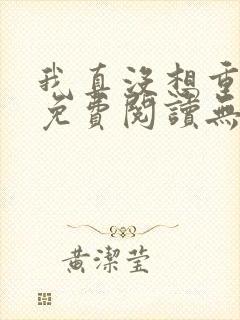 我真沒想重
免費閱讀無
黃潔瑩